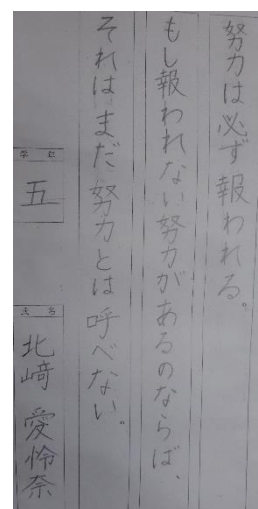 努力は必ず報われる。
もし報われない努力があるのならば、
それはまだ努力とは呼べない。
学年
五
氏名
北﨑 愛怜奈